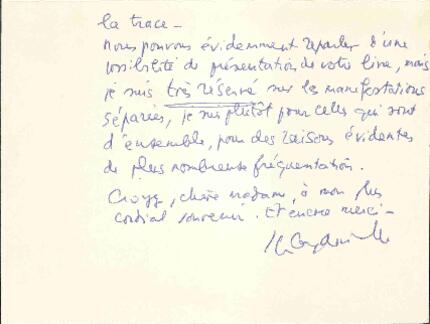 la trace –
Nous pouvons évidemment reparler d'une
possibilité de présentation de votre livre, mais
je suis très réservé sur les manifestations
séparées, je suis plutôt pour celles qui sont
d'ensemble, pour des raisons évidentes
de plus nombreuse fréquentation.
Croyez, chère madame, à mon plus
cordial souvenir. Et encore merci –